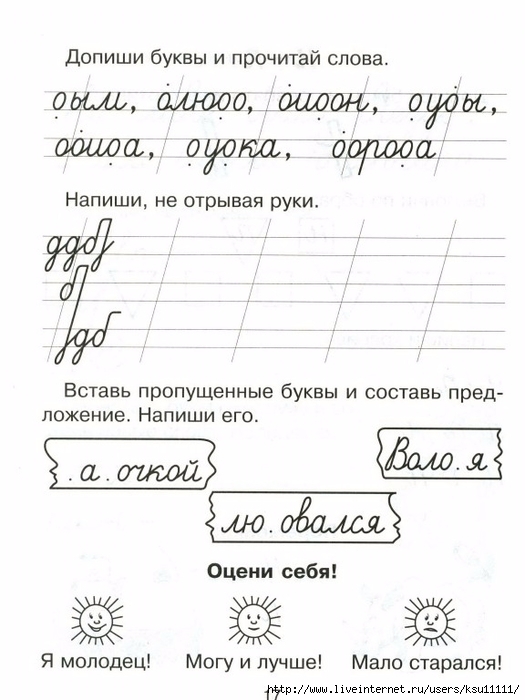 Допиши буквы и прочитай слова.
оым, олюоо, оиоон, оуоы,
ооиоа, оуока, оороoа
Напиши, не отрывая руки.
ддб
б
дб
Вставь пропущенные буквы и составь пред-
ложение. Напиши его.
Воло.я
.а.очкой
лю.овался
Оцени себя!
Я молодец! Могу и лучше! Мало старался!
17
http://www.liveinternet.ru/users/ksu11111/